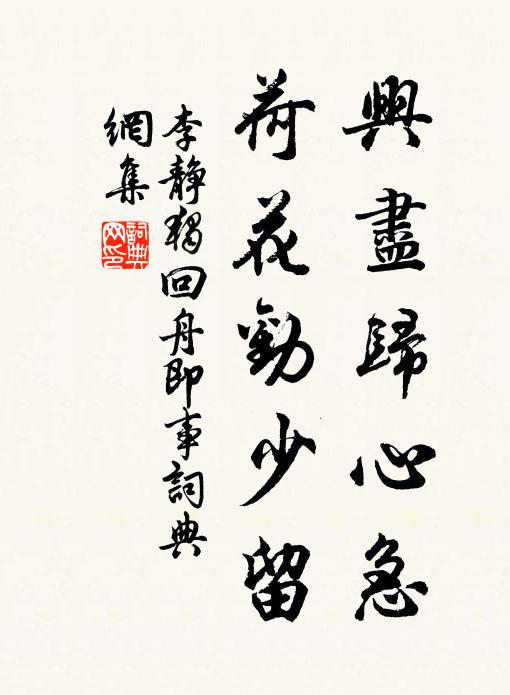 興盡歸心急
荷花勸少留
李靜獨回舟即事詞典
網集
詞典
网印